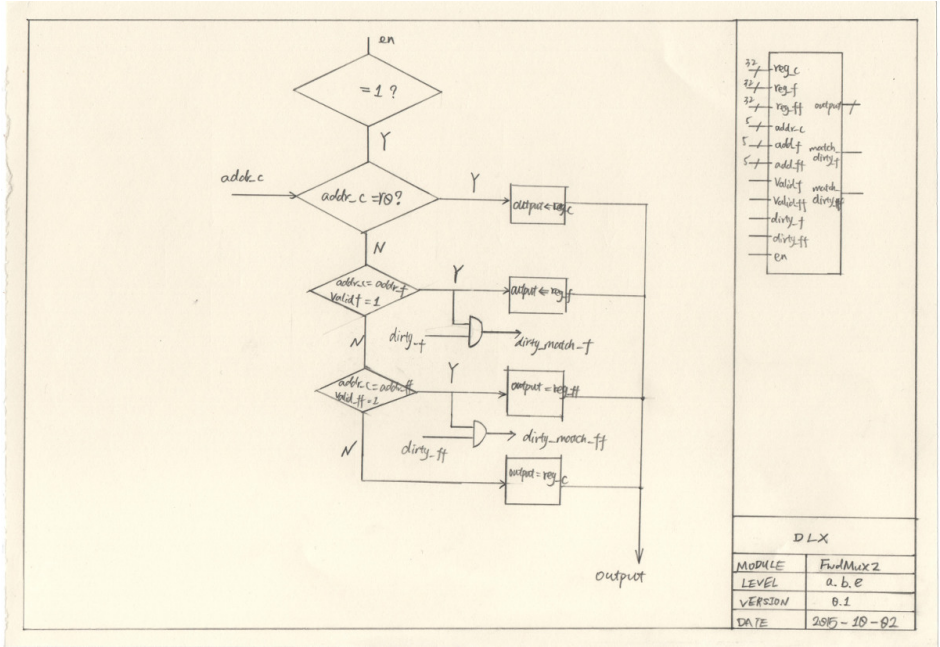 en
= 1 ?
Y
addr_c
addr_c = r0?
Y
output ← reg_c
N
addr_c = addr_f
Valid f = 1
Y
output ← reg_f
dirty_f
dirty_match_f
N
addr_c = addr_ff
Valid_ff = 1
Y
output = reg_ff
dirty_ff
dirty_match_ff
N
output = reg_c
output
32
reg_c
32
reg_f
32
reg_ff
output
5
addr_c
5
add_f
match_
dirty_f
5
add_ff
Valid_f
match_
dirty_ff
Valid_ff
dirty_f
dirty_ff
en
DLX
MODULE FwdMux2
LEVEL a.b.e
VERSION 0.1
DATE 2015-10-02